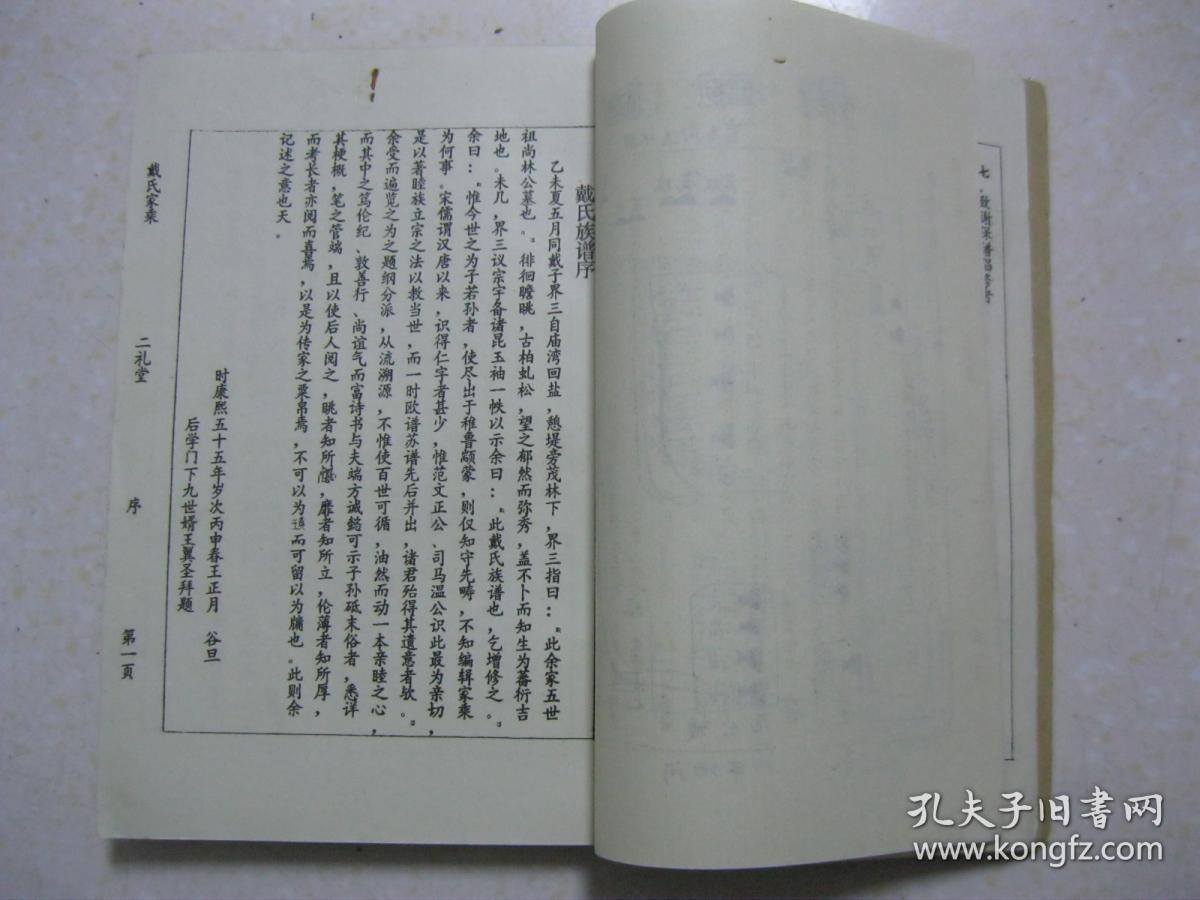 七、致谢
戴氏族谱序
乙未夏五月同戴子界三自庙湾回盐，憩堤旁茂林下，界三指曰："此余家五世
祖尚林公墓也。"徘徊瞻眺，古柏虬松，望之郁然而弥秀，盖不卜而知生为蕃衍吉
地也。未几，界三议宗字备诸昆玉袖一帙以示余曰："此戴氏族谱也，乞增修之。"
余曰："惟今世之为子若孙者，使尽出于稚鲁颛蒙，则仅知守先畴，不知编辑家乘
为何事。宋儒谓汉唐以来，识得仁字者甚少，惟范文正公、司马温公识此最为亲切，
是以著睦族立宗之法以教当世，而一时欧谱苏谱先后并出，诸君殆得其遗意者欤。"
余受而遍览之为之题纲分派，从流溯源，不惟使百世可循，油然而动一本亲睦之心，
而其中之笃伦纪、敦善行、尚谊气而富诗书与夫端方诚懿可示子孙砥末俗者，悉详
其梗概，笔之管端，且以使后人阅之，眺者知所，靡者知所立，伦薄者知所厚，
而考长者亦阅而喜焉，以是为传家之粟帛焉，不可以为而可留以为牖也。此则余
记述之意也夭。
时康熙五十五年岁次丙申春王正月　谷旦
后学门下九世婿王翼圣拜题
戴氏家乘　二礼堂　序　第一页
孔夫子旧书网
www.kongfz.com